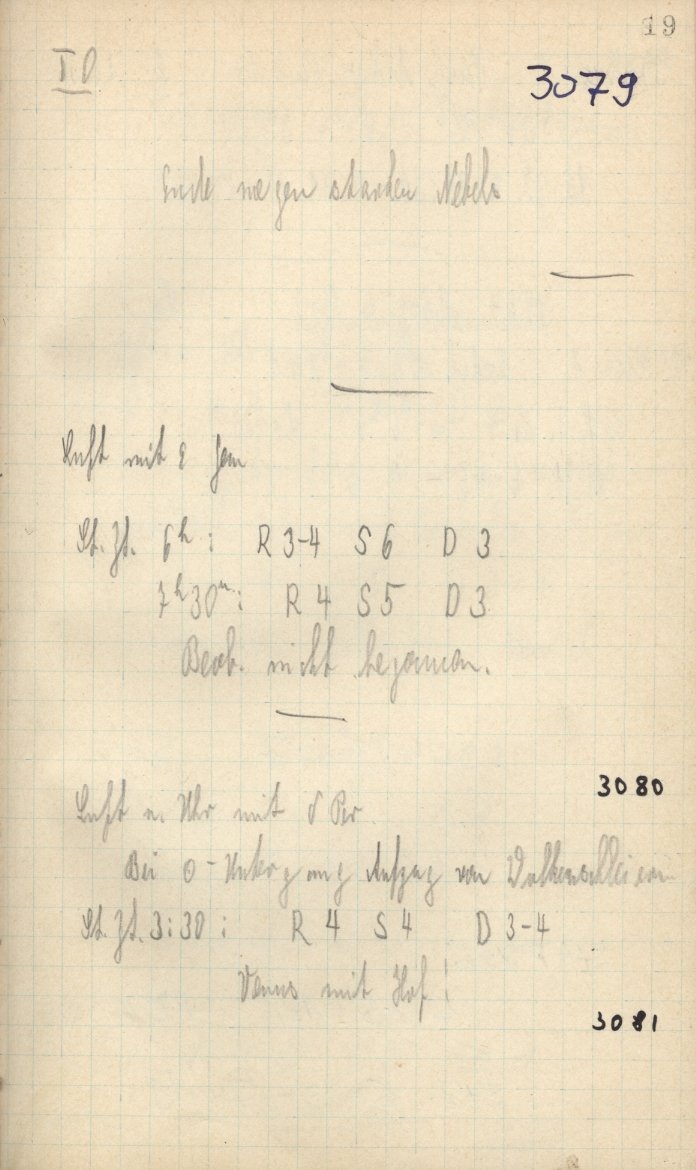 19
I 0
3079
Ende wegen starken Nebels
Luft mit ε Gem
St. Zt. 6h: R 3-4 S 6 D 3
7h30m: R 4 S 5 D 3
Beob. nicht begonnen.
3080
Luft u. Uhr mit δ Per
Bei ⊙-Untergang Aufzug von Wolkenschleiern
St. Zt. 3:30: R 4 S 4 D 3-4
Venus mit Hof!
3081